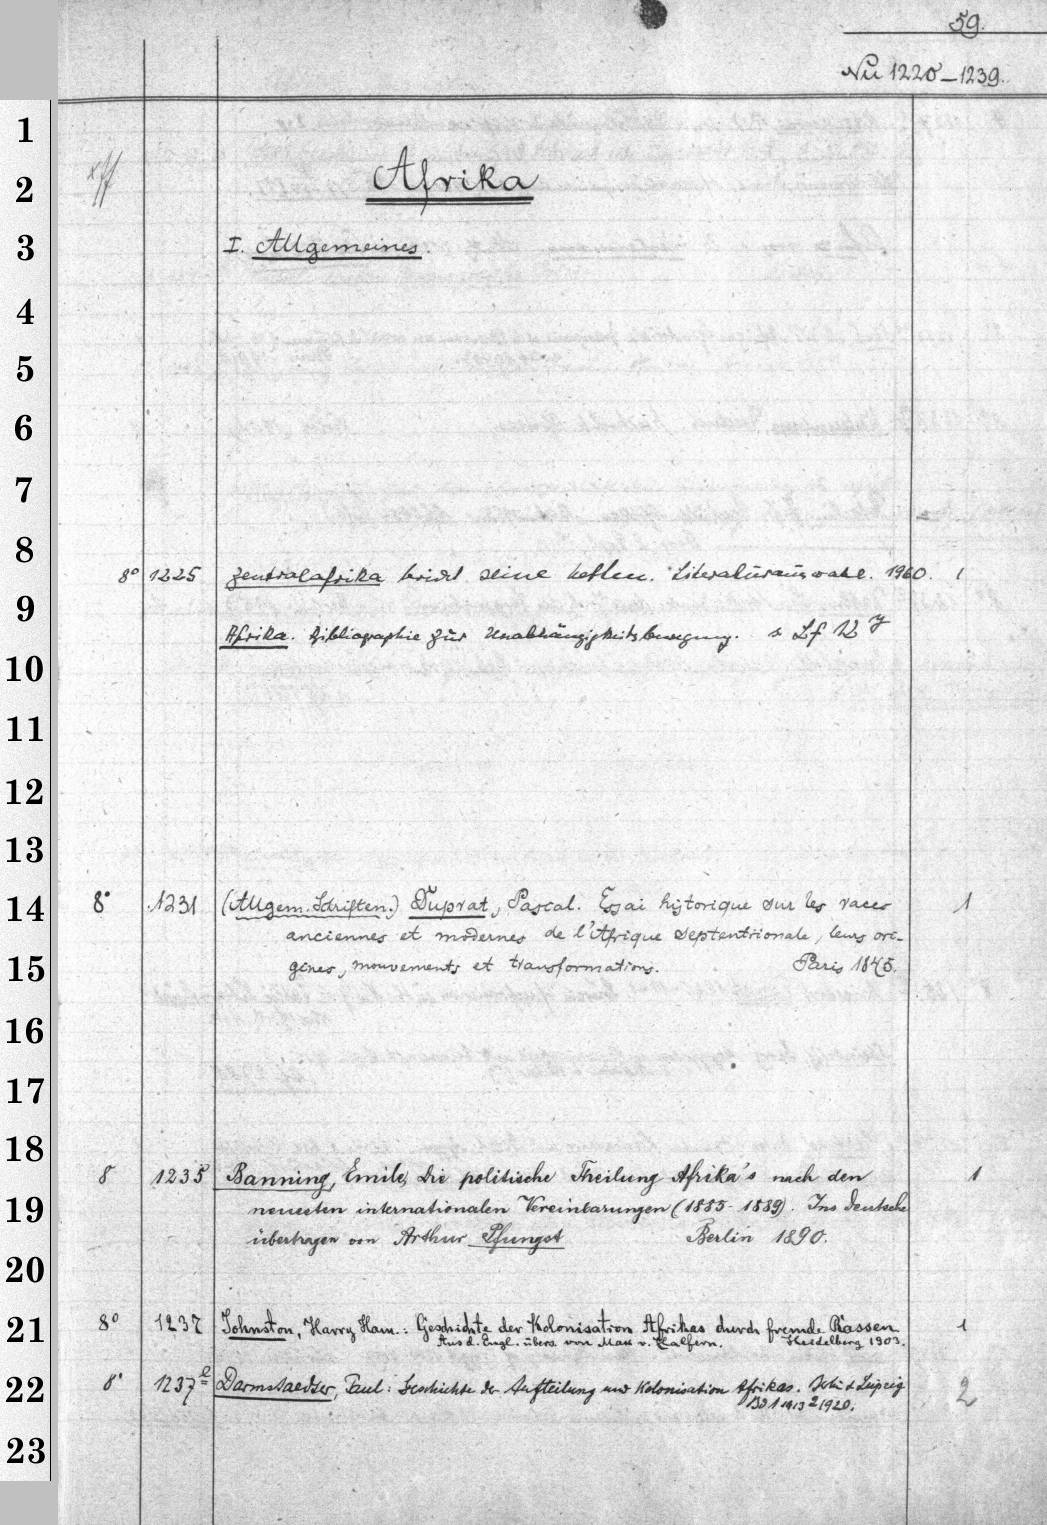 59.
Nu 1220–1239.
1
2
3
4
5
6
7
8
9
10
11
12
13
14
15
16
17
18
19
20
21
22
23
Afrika
I. Allgemeines.
8° 1225 Zentralafrika bricht seine Ketten. Literaturauswahl. 1960. 1
Afrika. Bibliographie zur Unabhängigkeitsbewegung. s Lf 12 y
8° 1231 (Allgem. Schriften.) Duprat, Pascal. Essai historique sur les races 1
anciennes et modernes de l'Afrique septentrionale, leurs ori-
gines, mouvements et transformations. Paris 1845.
8° 1235 Banning, Emile, Die politische Theilung Afrika's nach den 1
neuesten internationalen Vereinbarungen (1885–1889). Ins Deutsche
übertragen von Arthur Pfungst Berlin 1890.
8° 1237 Johnston, Harry Ham.: Geschichte der Kolonisation Afrikas durch fremde Rassen 1
Aus d. Engl. übers. von Max v. Halfern. Heidelberg 1903.
8° 1237 Darmstaedter, Paul: Geschichte der Aufteilung und Kolonisation Afrikas. Berlin & Leipzig 2
Bd 1 1913 2 1920.